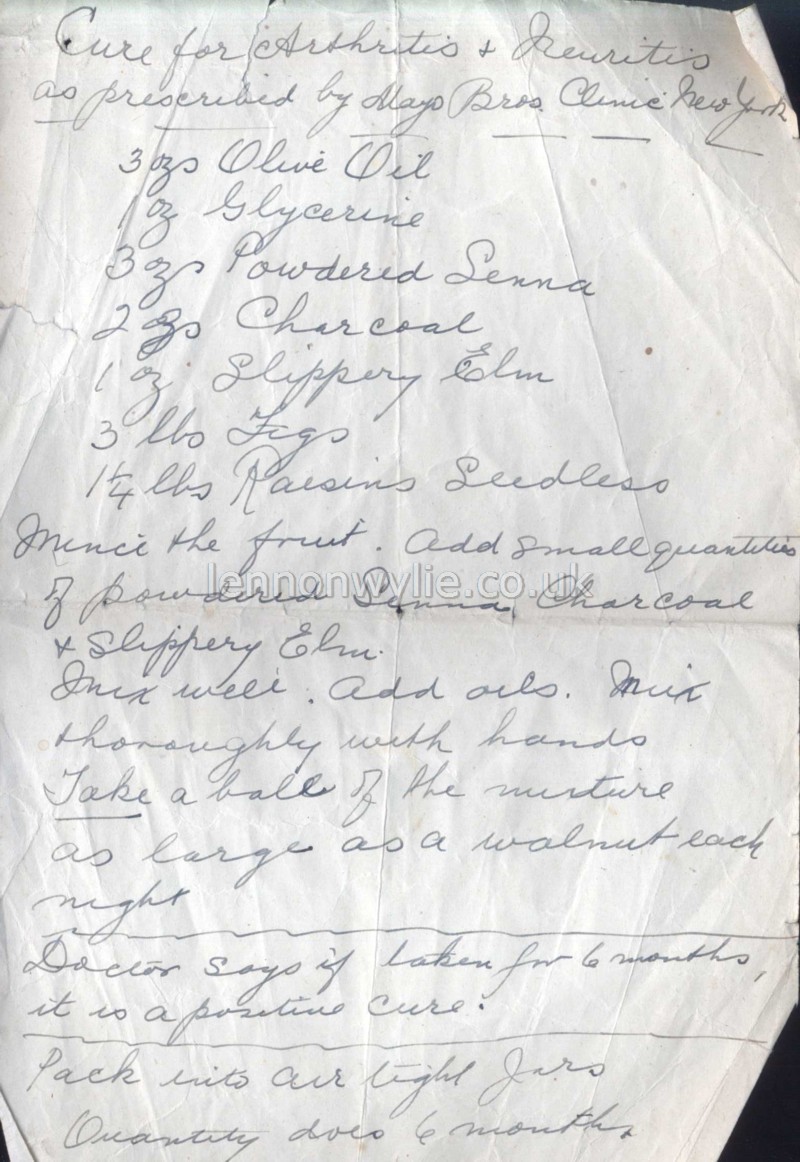 Cure for Arthritis & Neuritis
as prescribed by Mayo Bros. Clinic New York
3 ozs Olive Oil
1 oz Glycerine
3 ozs Powdered Senna
2 ozs Charcoal
1 oz Slippery Elm
3 lbs Figs
1¼ lbs Raisins Seedless
Mince the fruit. Add small quantities
of powdered Senna, Charcoal
lennonwylie.co.uk
& Slippery Elm.
Mix well. Add oils. Mix
thoroughly with hands
Take a ball of the mixture
as large as a walnut each
night
Doctor says if taken for 6 months,
it is a positive cure.
Pack into air tight Jars
Quantity does 6 months